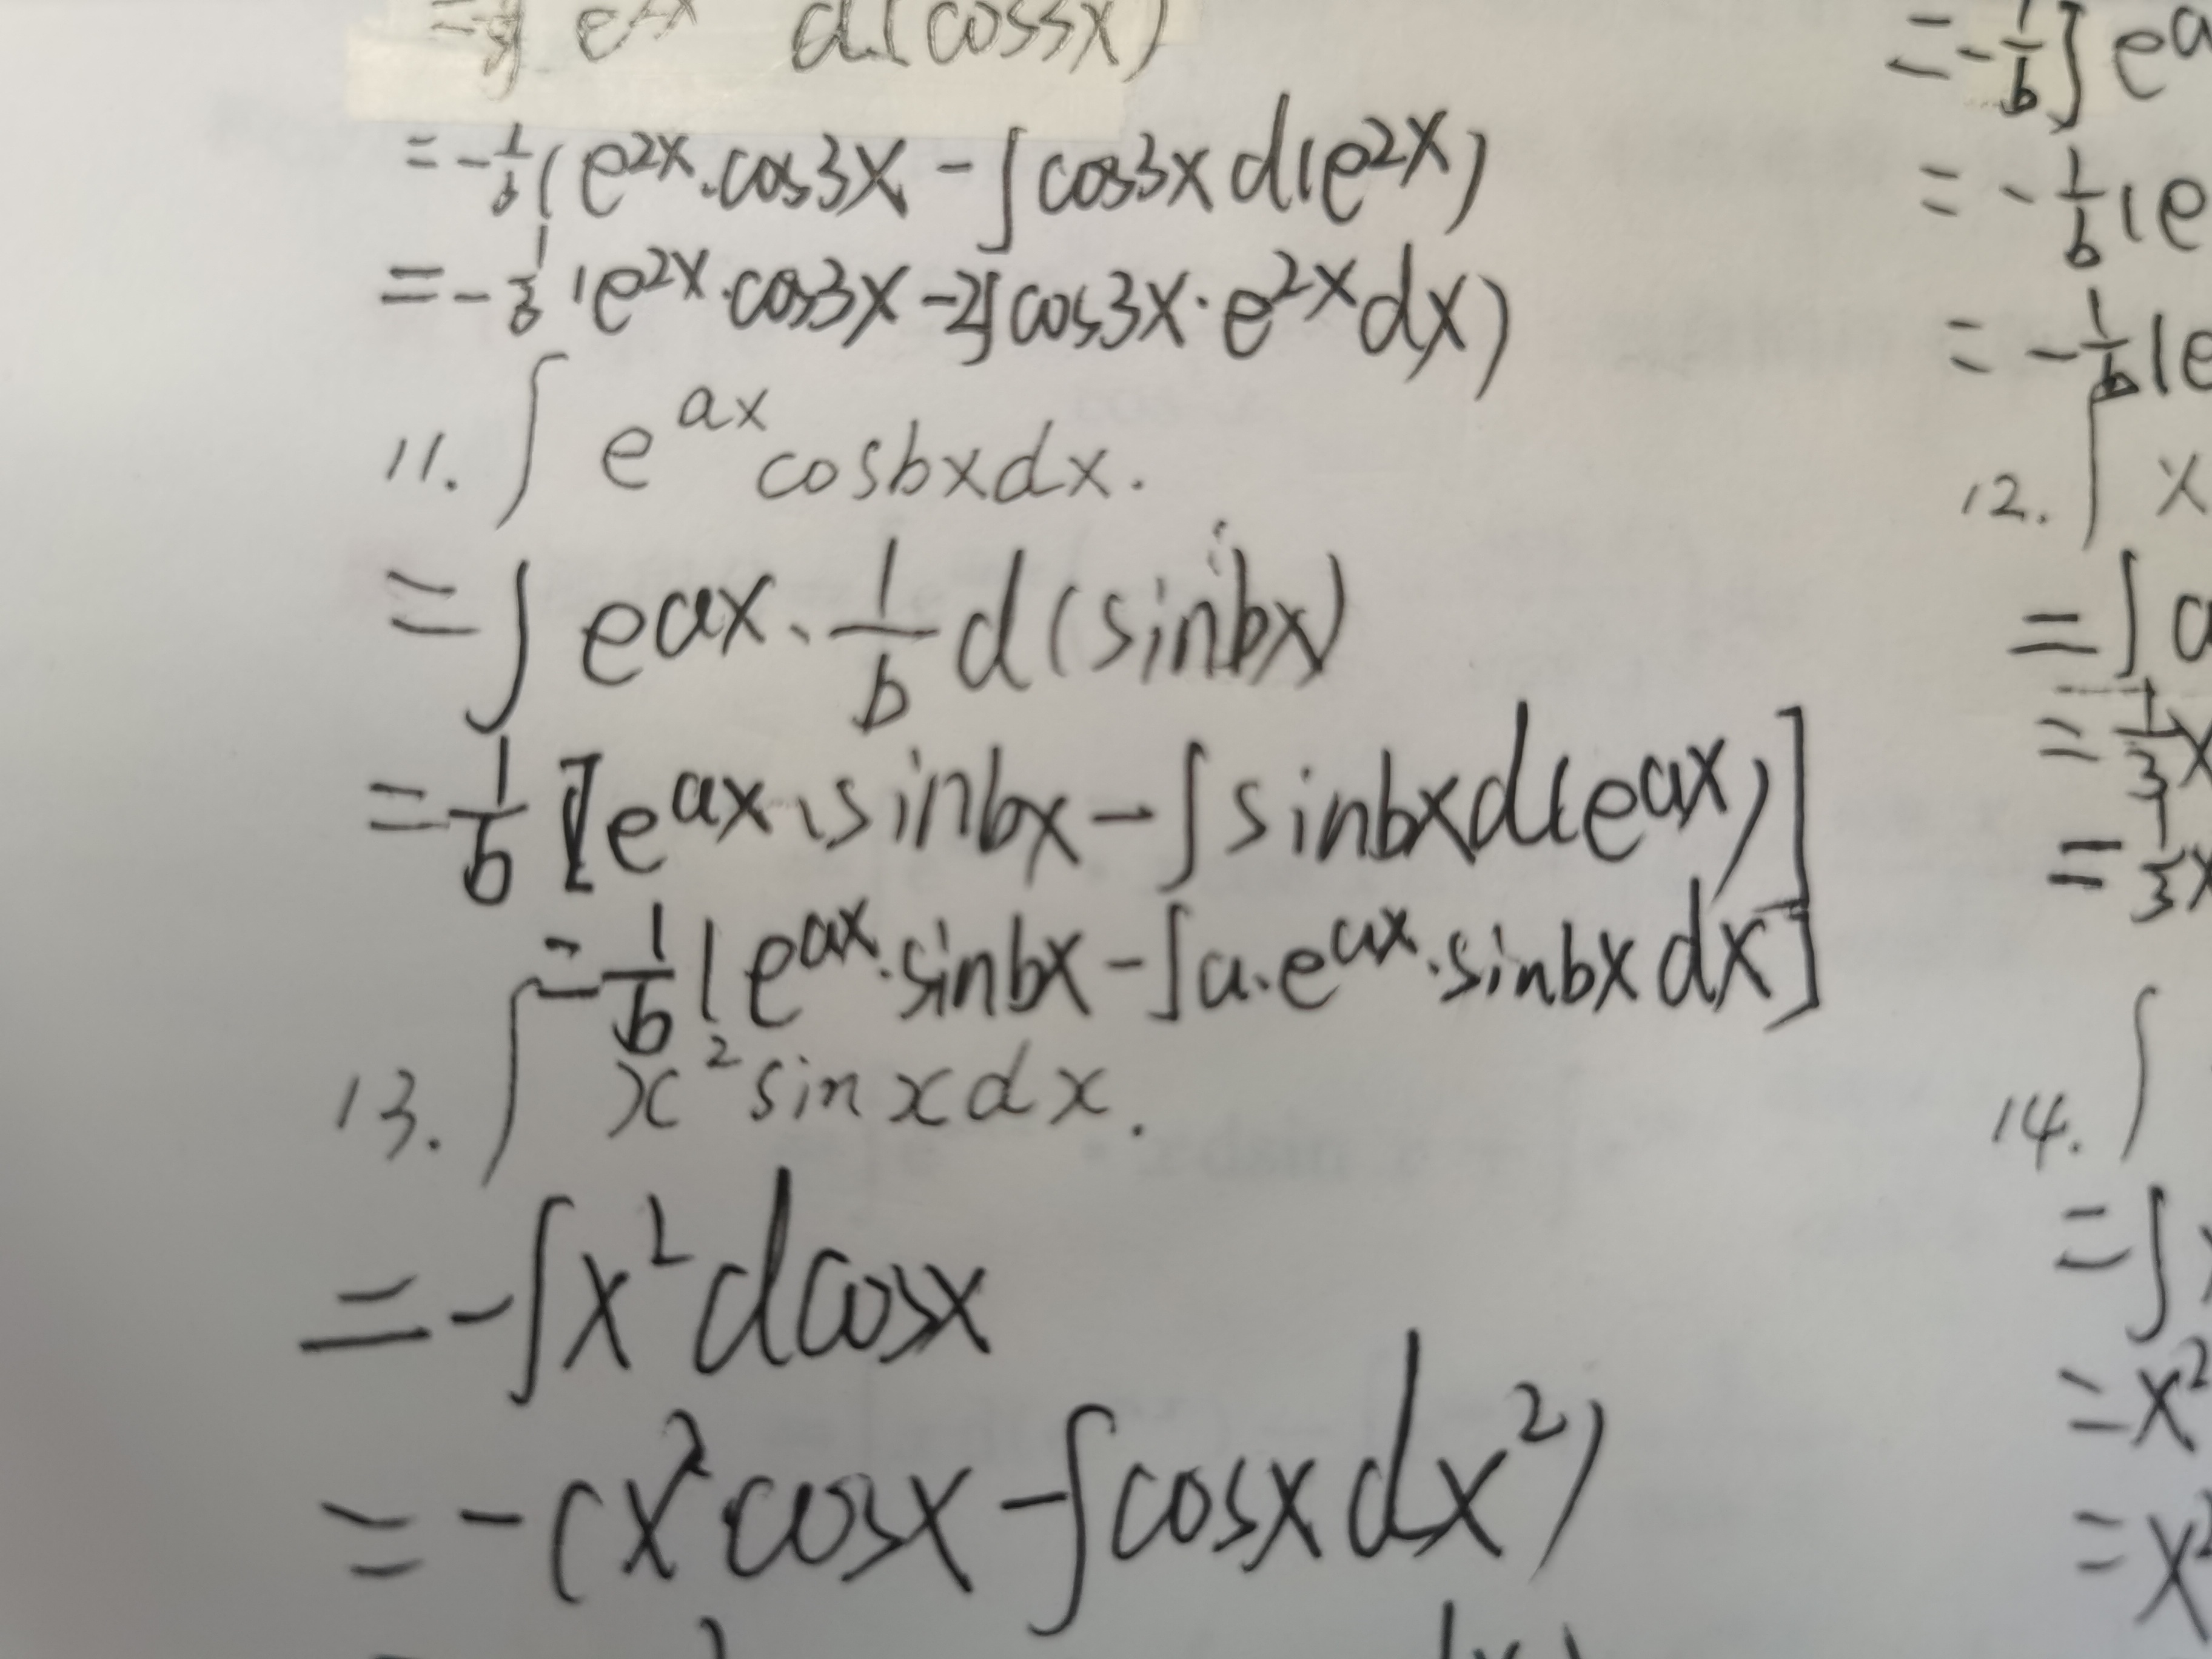 d(cos3x)
= -1/3(e^{2x}·cos3x - ∫cos3x d(e^{2x})
= -1/3(e^{2x}·cos3x - 2∫cos3x·e^{2x}dx)
11. ∫ e^{ax} cosbxdx.
= ∫ e^{ax}·1/b d(sinbx)
= 1/b [e^{ax}·sinbx - ∫sinbxd(e^{ax})]
= 1/b [e^{ax}·sinbx - ∫a·e^{ax}·sinbx dx]
13. ∫ x² sinxdx.
= -∫x² dcosx
= -(x²cosx - ∫cosx dx²)
= -1/b∫ e^a
= -1/b(e
= -1/b(e
12. ∫ x
= ∫
= 1/3x
= 1/3x
14. ∫
= ∫
= x²
= x²